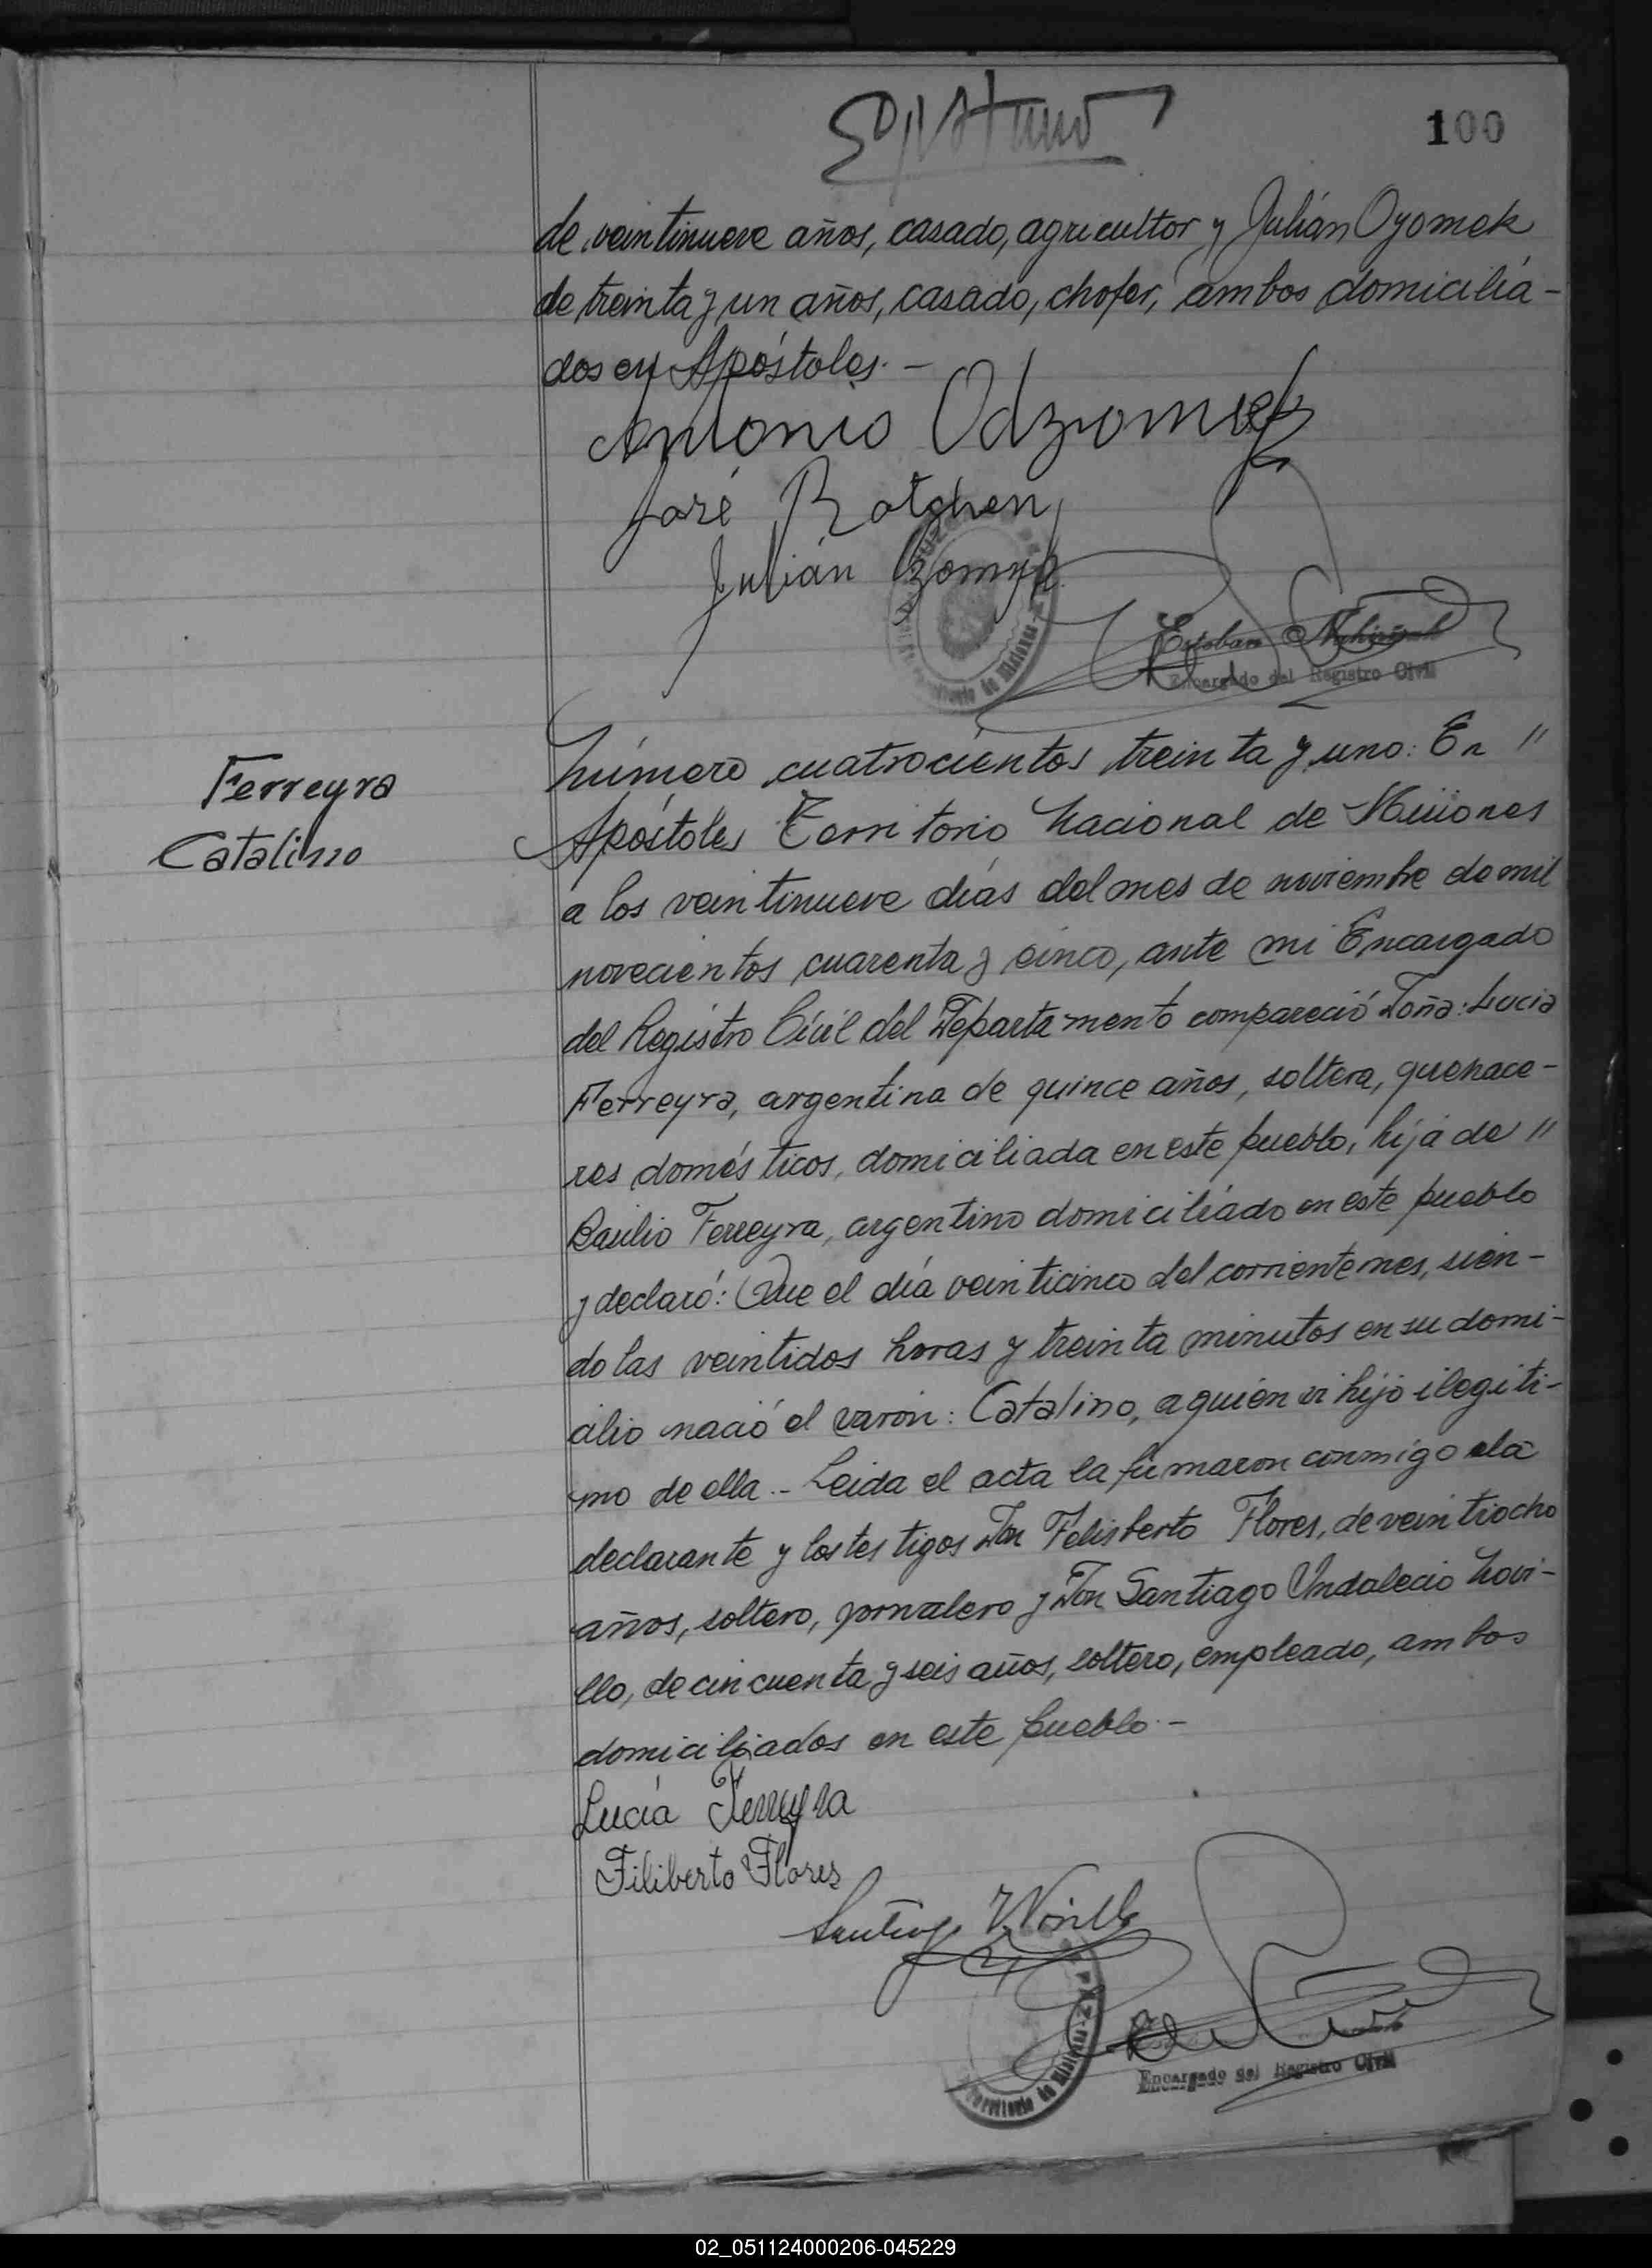 100
de veintinueve años, casado, agricultor y Julián Oyomek
de treinta y un años, casado, chofer, ambos domicilia-
dos en Apóstoles.-
Antonio Odziomek
José
Julián
Esteban
Encargado del Registro Civil
Ferreyra
Catalino
Número cuatrocientos treinta y uno: En "
Apóstoles Territorio Nacional de Misiones
a los veintinueve días del mes de noviembre de mil
novecientos cuarenta y cinco, ante mi Encargado
del Registro Civil del Departamento compareció Doña: Lucia
Ferreyra, argentina de quince años, soltera, quehace-
res domésticos, domiciliada en este pueblo, hija de "
Basilio Ferreyra, argentino domiciliado en este pueblo
y declaró: Que el día veinticinco del corriente mes, sien-
do las veintidos horas y treinta minutos en su domi-
cilio nació el varón: Catalino, a quien vi hijo ilegiti-
mo de ella.- Leida el acta la firmaron conmigo la
declarante y los testigos Don Felisberto Flores, de veintiocho
años, soltero, jornalero y Don Santiago Yndalecio Novi-
llo, de cincuenta y seis años, soltero, empleado, ambos
domiciliados en este pueblo.-
Lucía Ferreyra
Filiberto Flores
Santiago Y Novillo
Territorio de Misiones
Encargado del Registro Civil
02_051124000206-045229